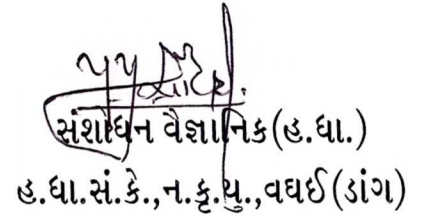 સંશોધન વૈજ્ઞાનિક (હ.ધા.)
હ.ધા.સં.કે.,ન.કૃ.યુ.,વઘઈ (ડાંગ)